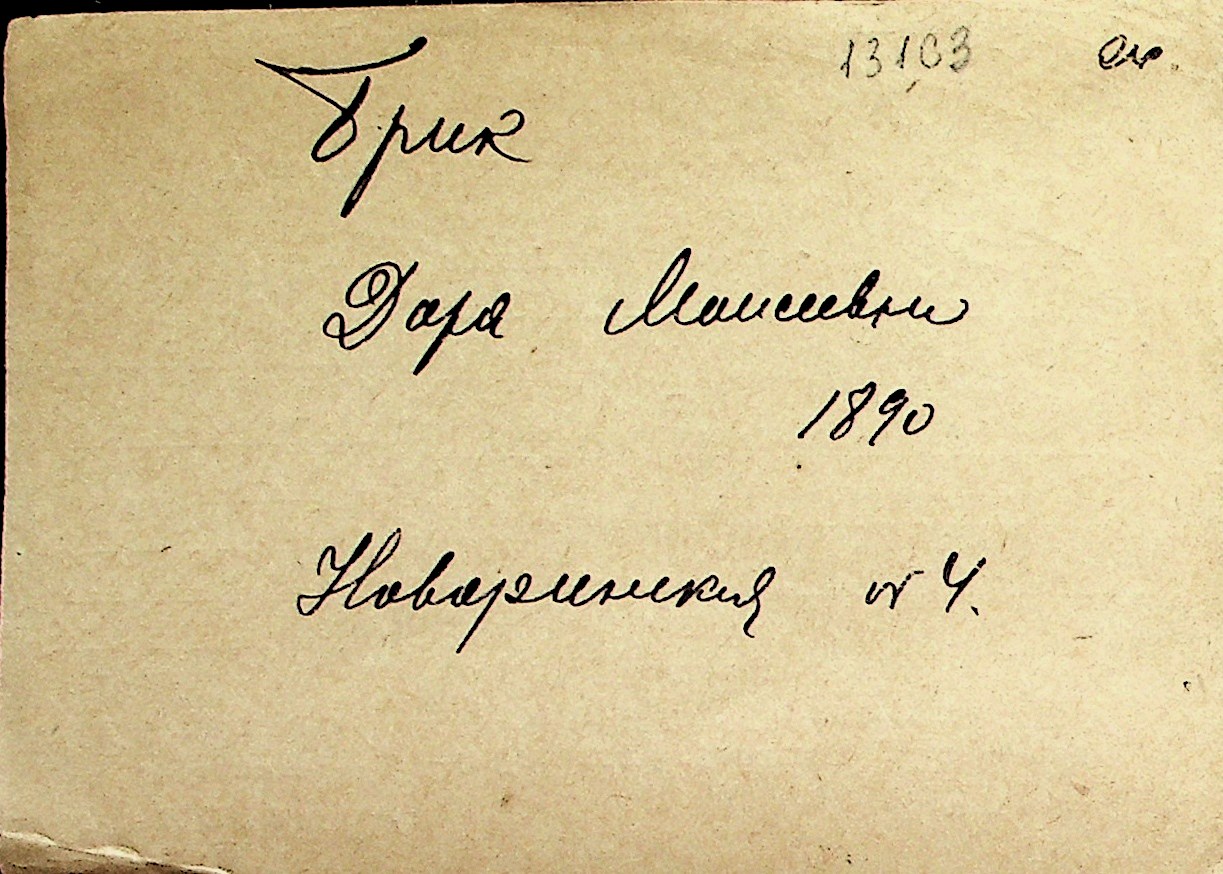 13103
Брик
Дора Моисеевн
1890
Новаринская № 4.